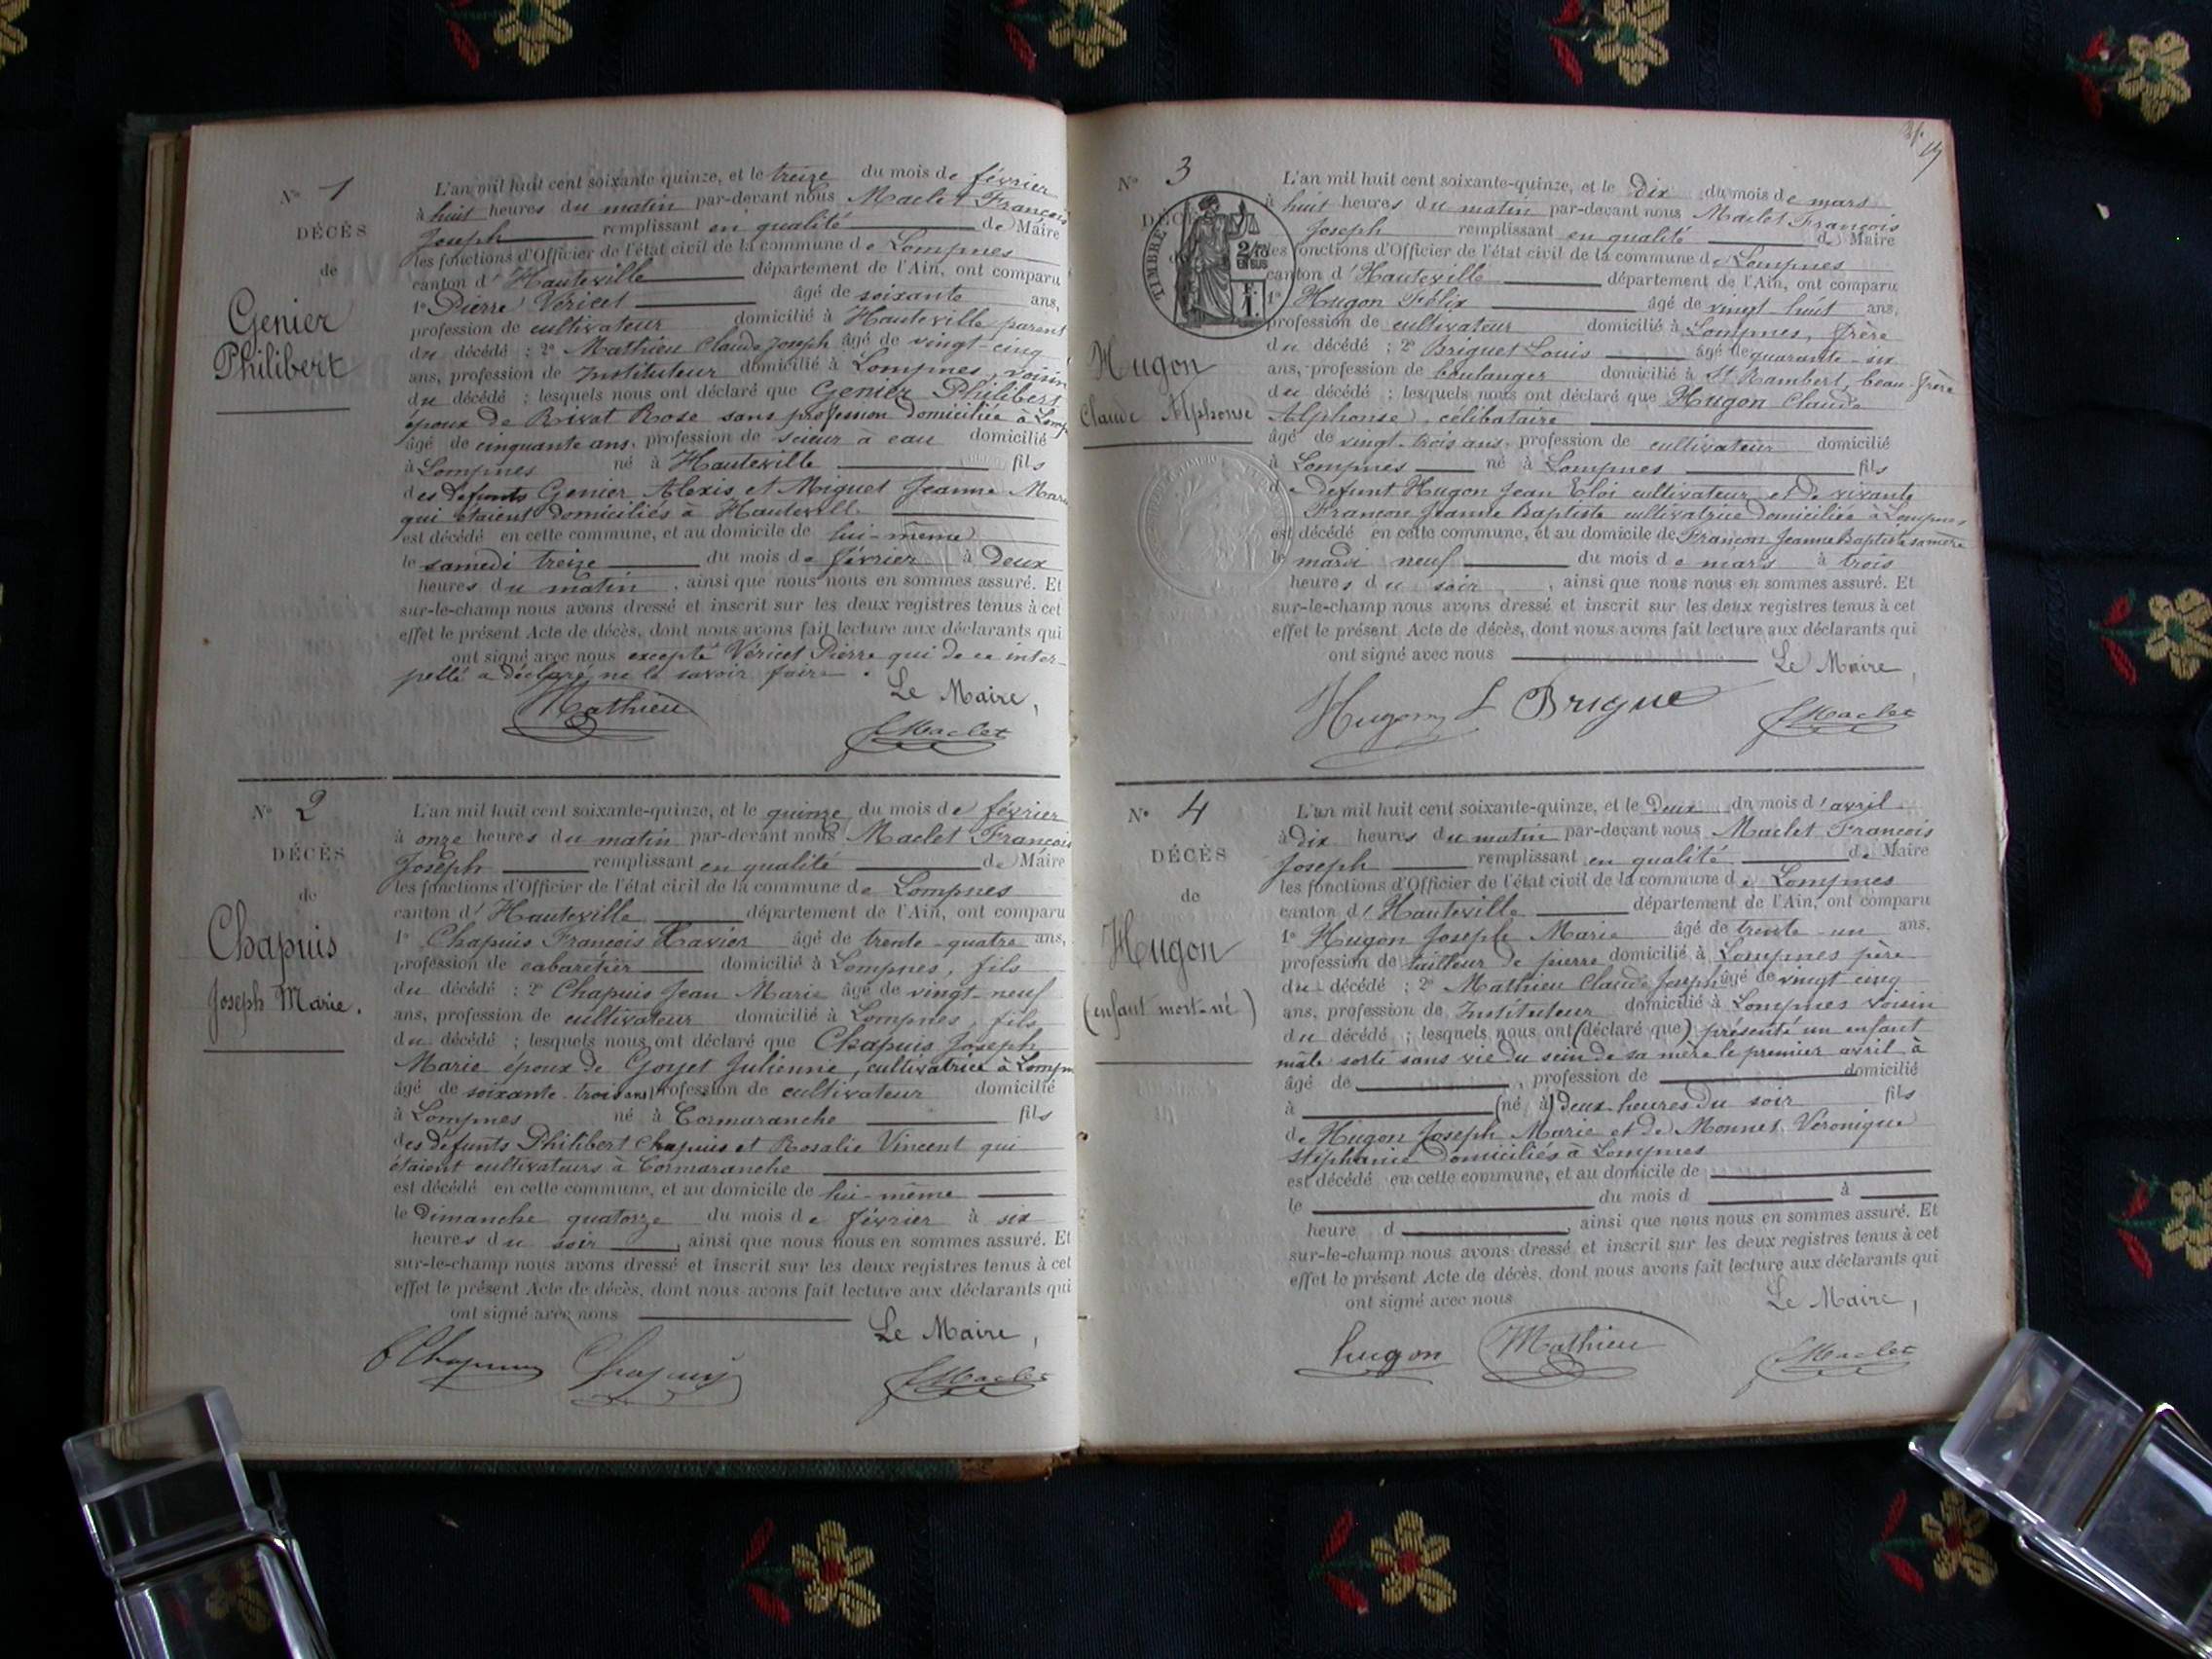 N° 1
DÉCÈS
de
Genier
Philibert
L'an mil huit cent soixante quinze, et le treize du mois de février
à huit heures du matin par-devant nous Maclet François
Joseph remplissant en qualité de Maire
les fonctions d'Officier de l'état civil de la commune de Lompnes
canton d'Hauteville département de l'Ain, ont comparu
1° Pierre Vericet âgé de soixante ans,
profession de cultivateur domicilié à Hauteville parent
du décédé ; 2° Mathieu Claude Joseph âgé de vingt-cinq
ans, profession de Instituteur domicilié à Lompnes, voisin
du décédé ; lesquels nous ont déclaré que Genier Philibert
époux de Rivat Rose sans profession domiciliée à Lomp
âgé de cinquante ans, profession de scieur à eau domicilié
à Lompnes né à Hauteville fils
des defunts Genier Alexis et Miguet Jeanne Marie
qui étaient domiciliés à Hautevill.
est décédé en cette commune, et au domicile de lui-même
le samedi treize du mois de février à deux
heures du matin, ainsi que nous nous en sommes assuré. Et
sur-le-champ nous avons dressé et inscrit sur les deux registres tenus à cet
effet le présent Acte de décès, dont nous avons fait lecture aux déclarants qui
ont signé avec nous excepté Véricet Pierre qui de ce inter-
pellé a déclaré ne le savoir faire.
Le Maire,
Mathieu
Maclet
N° 2
DÉCÈS
de
Chapuis
Joseph Marie.
L'an mil huit cent soixante-quinze, et le quinze du mois de février
à onze heures du matin par-devant nous Maclet François
Joseph remplissant en qualité de Maire
les fonctions d'Officier de l'état civil de la commune de Lompnes
canton d'Hauteville département de l'Ain, ont comparu
1° Chapuis François Xavier âgé de trente-quatre ans,
profession de cabaretier domicilié à Lompnes, fils
du décédé ; 2° Chapuis Jean Marie âgé de vingt-neuf
ans, profession de cultivateur domicilié à Lompnes, fils
du décédé ; lesquels nous ont déclaré que Chapuis Joseph
Marie époux de Goyet Julienne, cultivatrice à Lompn
âgé de soixante-trois ans, profession de cultivateur domicilié
à Lompnes né à Cormaranche fils
des défunts Philibert Chapuis et Rosalie Vincent qui
étaient cultivateurs à Cormaranche
est décédé en cette commune, et au domicile de lui-même
le Dimanche quatorze du mois de février à six
heures du soir, ainsi que nous nous en sommes assuré. Et
sur-le-champ nous avons dressé et inscrit sur les deux registres tenus à cet
effet le présent Acte de décès, dont nous avons fait lecture aux déclarants qui
ont signé avec nous
Le Maire,
Chapuis Chapuis Maclet
N° 3
TIMBRE
2/10
EN SUS
Hugon
Claude Alphonse
L'an mil huit cent soixante-quinze, et le dix du mois de mars
à huit heures du matin par-devant nous Maclet François
Joseph remplissant en qualité de Maire
les fonctions d'Officier de l'état civil de la commune de Lompnes
canton d'Hauteville département de l'Ain, ont comparu
1° Hugon Félix âgé de vingt-huit ans,
profession de cultivateur domicilié à Lompnes, frère
du décédé ; 2° Briguet Louis âgé de quarante-six
ans, profession de boulanger domicilié à St Rambert, beau-frère
du décédé ; lesquels nous ont déclaré que Hugon Claude
Alphonse, célibataire
âgé de vingt-trois ans, profession de cultivateur domicilié
à Lompnes né à Lompnes fils
de defunt Hugon Jean Eloi cultivateur et de vivante
Françon Jeanne Baptiste cultivatrice domiciliée à Lompnes
est décédé en cette commune, et au domicile de Françon Jeanne Baptiste sa mère
le mardi neuf du mois de mars à trois
heures du soir, ainsi que nous nous en sommes assuré. Et
sur-le-champ nous avons dressé et inscrit sur les deux registres tenus à cet
effet le présent Acte de décès, dont nous avons fait lecture aux déclarants qui
ont signé avec nous
Le Maire,
Hugon L Brigue Maclet
N° 4
DÉCÈS
de
Hugon
(enfant mort-né)
L'an mil huit cent soixante-quinze, et le deux du mois d'avril
à Dix heures du matin par-devant nous Maclet François
Joseph remplissant en qualité de Maire
les fonctions d'Officier de l'état civil de la commune de Lompnes
canton d'Hauteville département de l'Ain, ont comparu
1° Hugon Joseph Marie âgé de trente-un ans,
profession de tailleur de pierre domicilié à Lompnes père
du décédé ; 2° Mathieu Claude Joseph âgé de vingt cinq
ans, profession de Instituteur domicilié à Lompnes voisin
du décédé ; lesquels nous ont (déclaré que) présenté un enfant
mâle sorti sans vie du sein de sa mère le premier avril à
âgé de , profession de domicilié
à (né à) deux heures du soir fils
de Hugon Joseph Marie et de Monnet Véronique
Stéphanie domiciliés à Lompnes
est décédé en cette commune, et au domicile de
le du mois d à
heure d , ainsi que nous nous en sommes assuré. Et
sur-le-champ nous avons dressé et inscrit sur les deux registres tenus à cet
effet le présent Acte de décès, dont nous avons fait lecture aux déclarants qui
ont signé avec nous
Le Maire,
hugon Mathieu Maclet